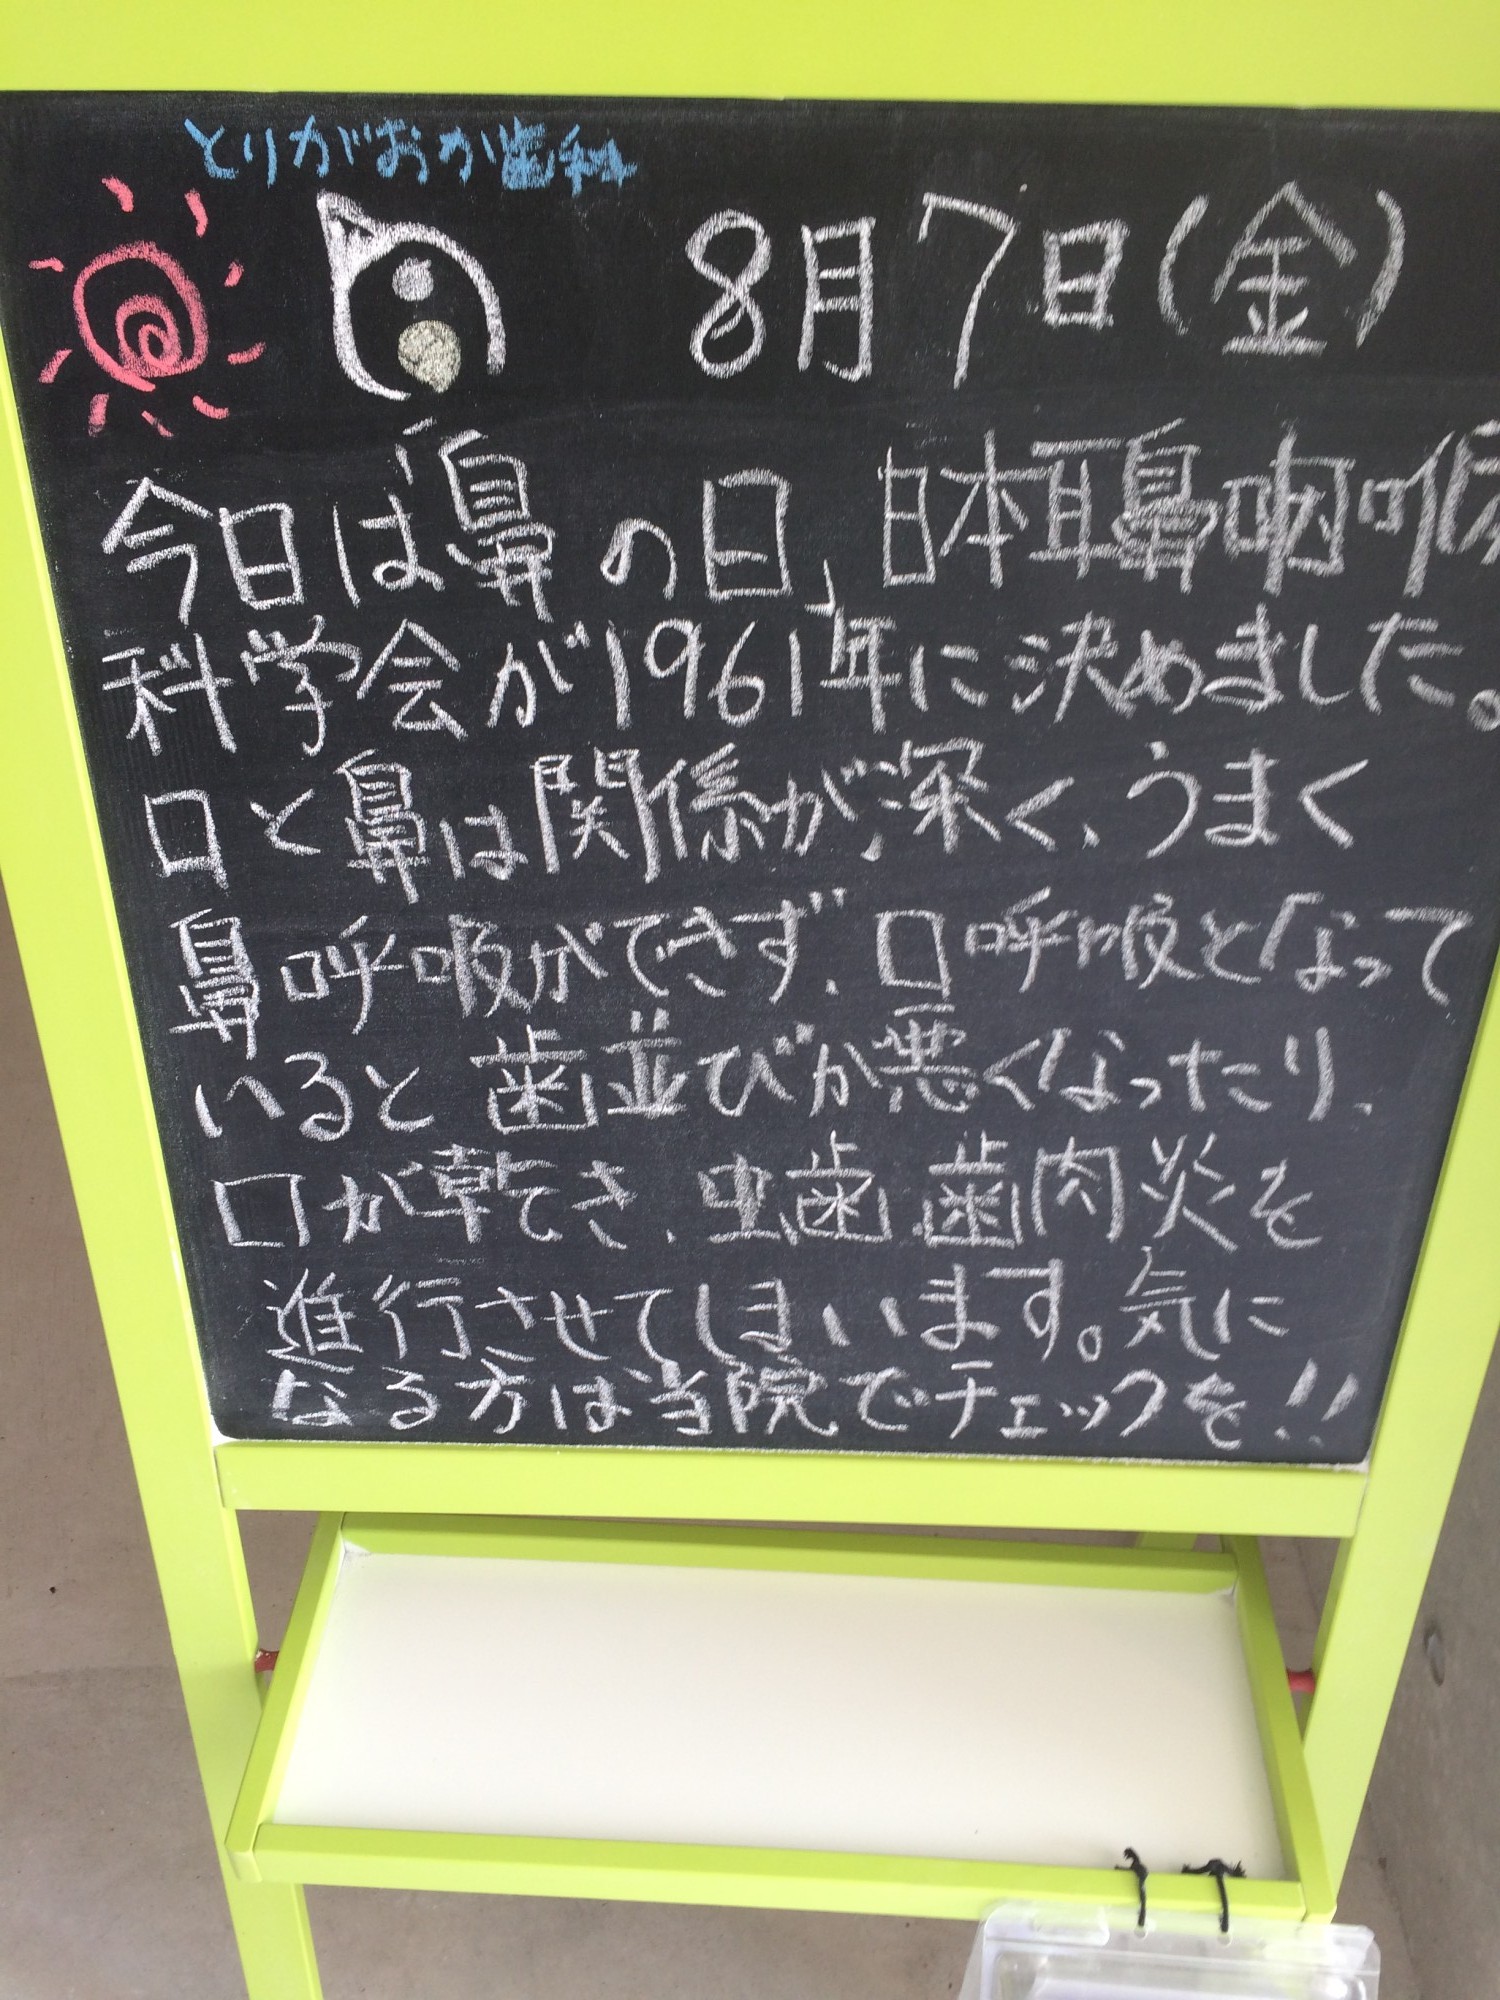 とりがおか歯科
8月7日(金)
今日は鼻の日、日本耳鼻咽喉
科学会が1961年に決めました。
口と鼻は関係が深く、うまく
鼻呼吸ができず、口呼吸となって
いると歯並びが悪くなったり、
口が乾き、虫歯、歯肉炎を
進行させてしまいます。気に
なる方は当院でチェックを!!